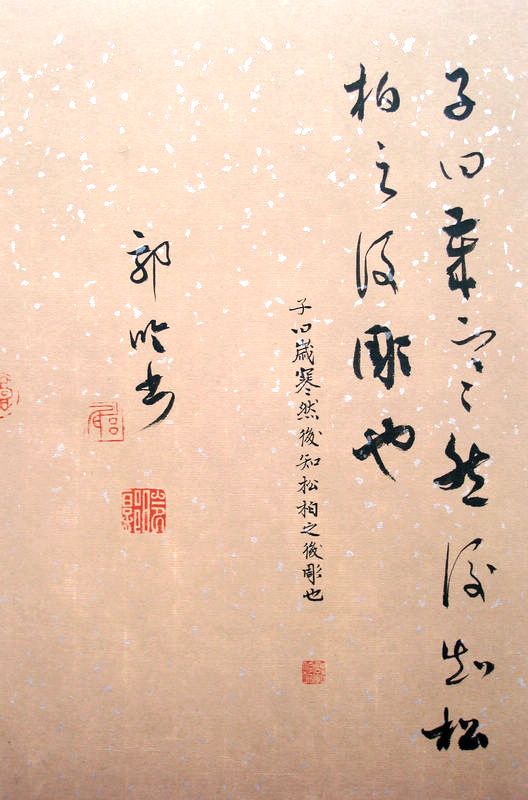 子曰歲寒然後知松
柏之後彫也
子曰歲寒然後知松柏之後彫也
郭吟書